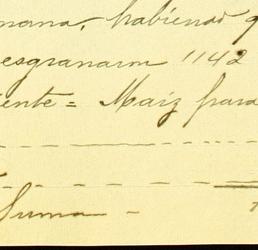 mana, habiendo
esgranaron 1142
iente = Maiz para
Suma -